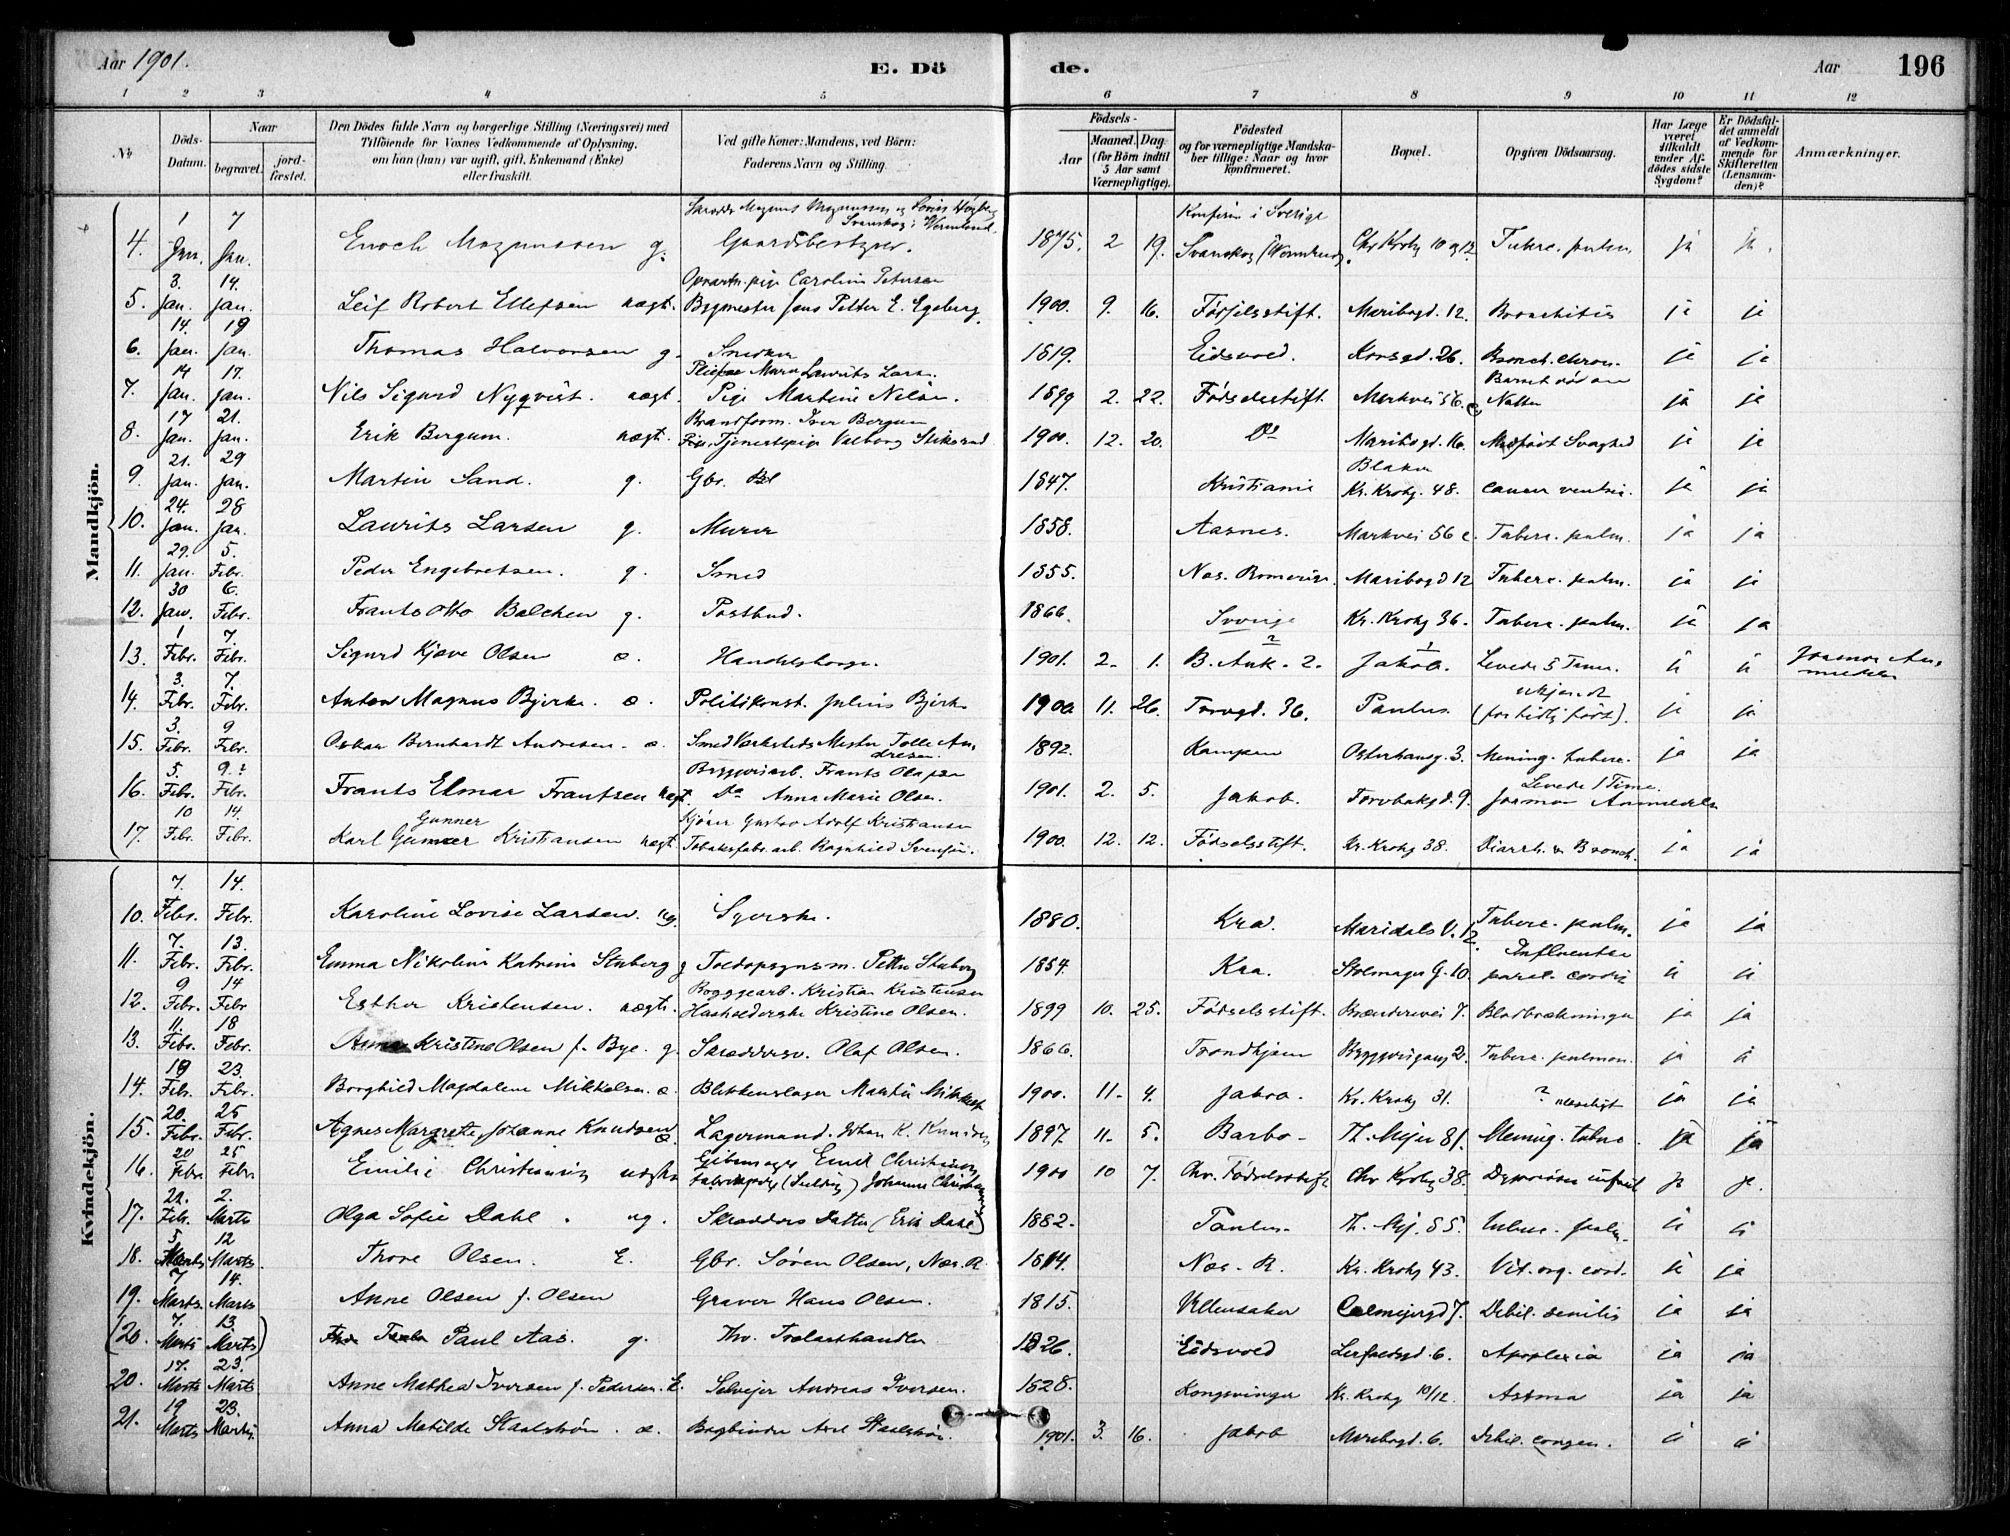 Aar 1901. E. Dö de. Aar 196
1 2 3 4 5 6 7 8 9 10 11 12
No Döds-Datum. Naar begravet. jordfæstet. Den Dödes fulde Navn og borgerlige Stilling (Næringsvei) med Tilföiende for Voxnes Vedkommende af Oplysning, om han (hun) var ugift, gift, Enkemand (Enke) eller fraskilt. Ved gifte Koner: Mandens, ved Börn: Faderens Navn og Stilling. Födsels- Aar Maaned. Dag. (for Börn indtil 5 Aar samt Værnepligtige). Födested og for værnepligtige Mandskaber tillige: Naar og hvor konfirmeret. Bopæl. Opgiven Dödsaarsag. Har Læge været tilkaldt under Afdödes sidste Sygdom? Er Dödsfaldet anmeldt af Vedkommende for Skifteretten (Lensmanden)? Anmærkninger.
Mandkjön.
4. 1 Jan. 7 Jan. Enoch Magnussen g. Gaardsbestyrer. 1875. 2 19. Konfirm i Sverige Svanskog (Wermland) Chr Krohg 10 og 12 Tuberc. pulm. ja ja.
5. 3. Jan. 14. Jan. Leif Robert Ellefsen uægt. Opvartn. pige Caroline Petersen Bygmester Jens Petter E. Egeberg. 1900. 9. 16. Födselsstift. Maribogd. 12. Bronchitis ja ja
6. 14. Jan. 19 Jan. Thomas Halvorsen g. Snedker 1819. Eidsvold. Korsgd. 26. Bronch. chron. ja ja
7. 14 Jan. 17. Jan. Nils Sigurd Nyqvist. uægt. Murer Laurits Larsen. Pige Martine Nilsen. 1899 2. 22. Födselsstift Markvei 56. c Barnet död om Natten ja ja
8. 17 Jan. 21. Jan. Erik Bergum. uægt. Brandform. Iver Bergum Tjenestepige Valborg 1900. 12. 20. Do Maribogd. 16. Medfödt Svaghed ja ja
9. 21. Jan. 29 Jan. Martin Sand. g. Gbr. 1847. Kristiania Blaker Kr. Krohg. 48. cancer ventric. ja ja
10. 24. Jan. 28 Jan. Laurits Larsen g. Murer 1858. Aasnes. Markvei 56 c. Tuberc. pulm. ja ja
11. 29. Jan. 5. Febr. Peder Engebretsen. g. Smed 1855. Nes. Romerige. Maribogd 12 Tuberc. pulm. ja ja
12. 30 Jan. 6. Febr. Frants Otto Balchen g. Postbud. 1866. Sverige Kr. Krohg 36. Tuberc. pulm. ja ja
13. 1 Febr. 7. Febr. Sigurd Kjøve Olsen æ. Handelsborger. 1901. 2. 1. B. Ank. 2. Jakob. Levede 5 Timer. ja ja Jormor Anmeldelse
14. 3. Febr. 7. Febr. Anton Magnus Bjerke. æ. Politikonst. Julius Bjerke 1900 11. 26. Torvgd. 36. Paulus. ukjendt (for tidlig födt). ja ja
15. 3. Febr. 9 Febr. Oskar Bernhardt Andresen. æ. Smed Værksteds Mester Tolle Andresen. 1892. Kampen Osterhausg. 3. Mening. tuberc. ja ja
16. 5. Febr. 9.? Febr. Frants Elmar Frantsen uægt. Bryggeriarb. Frants Olafsen Do Anna Marie Olsen. 1901. 2. 5. Jakob. Torvbakgd. 9. Levede 1 Time. Jormor Anmeldelse
17. 10 Febr. 14. Febr. Karl Gunner Gunner Kristiansen uægt. Kjører Gustav Adolf Kristiansen Tobaksfabr. arb. Ragnhild Svensen. 1900. 12. 12. Födselsstift. Kr. Krohg 38. Diarrh. & Bronch. ja ja
Kvindekjön.
10. 7. Febr. 14. Febr. Karoline Lovise Larsen. ug. Syerske. 1880. Kra. Maridals V. 12. Tuberc. pulm. ja ja
11. 7. Febr. 13. Febr. Emma Nikoline Katrine Stuberg g Toldopsynsm. Petter Stuberg 1854. Kra. Stolmager G. 10. Influentsa paral. cordis ja ja
12. 9 Febr. 14 Febr Esther Kristensen. uægt. Byggearb. Kristian Kristensen Husholderske Kristine Olsen. 1899 10. 25. Födselsstift. Brenderivei 7. Blodbrækninger ja ja
13. 11. Febr. 18 Febr. Anna Kristine Olsen f. Bye. g. Skræddersv. Olaf Olsen. 1866. Trondhjem Bryggerigang 2. Tuberc. pulmon. ja ja
14. 18 Febr. 23. Febr. Borghild Magdalene Mikkelsen. æ. Blikkenslager Martin Mikkelsen 1900. 11. 4. Jakob. Kr. Krohg 31. ? ja ja
15. 20. Febr. 25 Febr. Agnes Margrete Johanne Knudsen æ Lagermand. Johan K. Knudsen 1897. 11. 5. Barbo. Th. Mejer 81. Mening. tuberc. ja ja
16. 20 Febr 25 Febr Emilie Christiansen uægte Emil Christiansen Johanne Christiansen 1900 10 7. Chr. Födselsstift Chr Krohg 38. ja ja.
17. 22. Febr. 2. Marts Olga Sofie Dahl. ug. Skrædders Datter (Erik Dahl) 1882. Paulus. Th. Mej. 55. Tuberc. pulm. ja ja
18. 5 Marts 12 Marts. Thore Olsen. E. Gbr. Sören Olsen, Nes. R. 1814. Nes. R. Kr. Krohg 43. Vit. org. cord. ja ja
19. 7 Marts. 14. Marts Anne Olsen f. Olsen Graver Hans Olsen. 1815. Ullensaker Colmejergd 7. Debil. senilis ja ja
(20. 7. Marts 13. Marts) Paul Aas. g. fhv. Trælasthandler 1826. Eidsvold Lerfaldsgd. 6. Apoplexia ja ja
20. 17. Marts 23. Marts Anne Mathea Iversen f. Pedersen. E. Selveier Andreas Iversen. 1828. Kongsvinger Kr. Krohg 10/12 Astma ja ja
21. 19 Marts 23. Marts. Anna Matilde Staalström. æ. Bogbinder Axel Staalström. 1901. 3. 16. Jakob Maribogd. 6. Debil. congen. ja ja